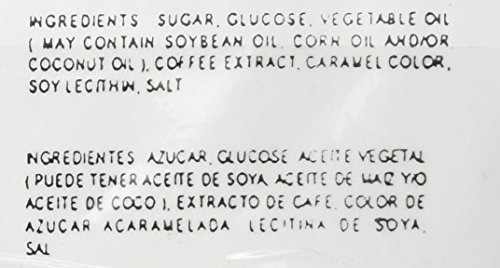 INGREDIENTS SUGAR, GLUCOSE, VEGETABLE OIL
( MAY CONTAIN SOYBEAN OIL, CORN OIL AND/OR
COCONUT OIL ), COFFEE EXTRACT, CARAMEL COLOR,
SOY LECITHIN, SALT
INGREDIENTES AZUCAR, GLUCOSE ACEITE VEGETAL
( PUEDE TENER ACEITE DE SOYA ACEITE DE MAIZ Y/O
ACEITE DE COCO ), EXTRACTO DE CAFE, COLOR DE
AZUCAR ACARAMELADA LECITINA DE SOYA,
SAL